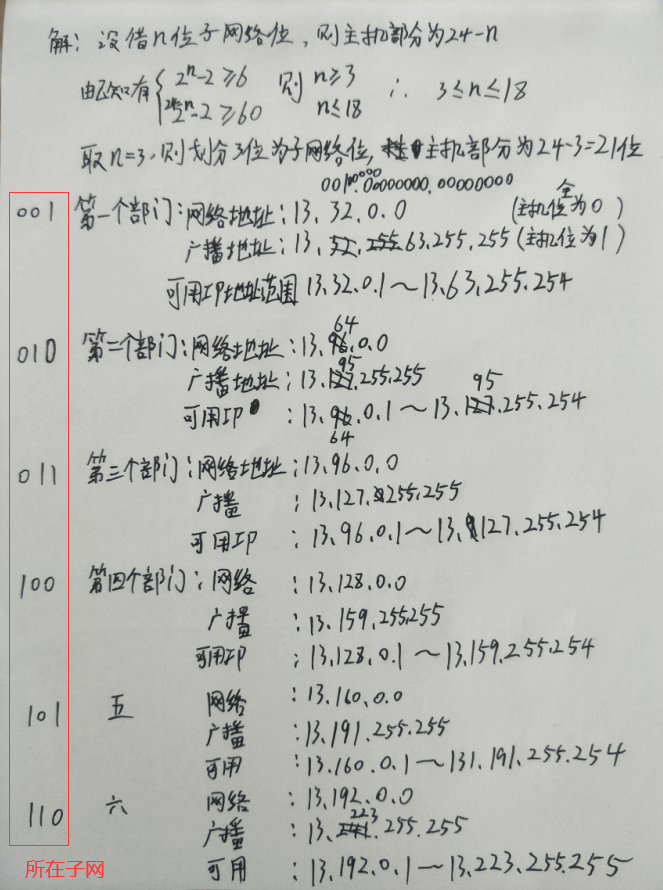 解：设借n位子网络位，则主机部分为24-n
由已知有{2ⁿ-2≥6 则 n≥3 ∴ 3≤n≤18
2²⁴⁻ⁿ-2≥60 n≤18
取n=3，则划分3位为子网络位，主机部分为24-3=21位
00100000.00000000.00000000
001 第一个部门：网络地址：13.32.0.0 (主机位为全0)
广播地址：13.63.255.255 (主机位为1)
可用IP地址范围 13.32.0.1～13.63.255.254
010 第二个部门：网络地址：13.64.0.0
广播地址：13.95.255.255
可用IP：13.64.0.1～13.95.255.254
011 第三个部门：网络地址：13.96.0.0
广播：13.127.255.255
可用IP：13.96.0.1～13.127.255.254
100 第四个部门：网络：13.128.0.0
广播：13.159.255.255
可用IP：13.128.0.1～13.159.255.254
101 五 网络：13.160.0.0
广播：13.191.255.255
可用：13.160.0.1～131.191.255.254
110 六 网络：13.192.0.0
广播：13.223.255.255
可用：13.192.0.1～13.223.255.255
所在子网